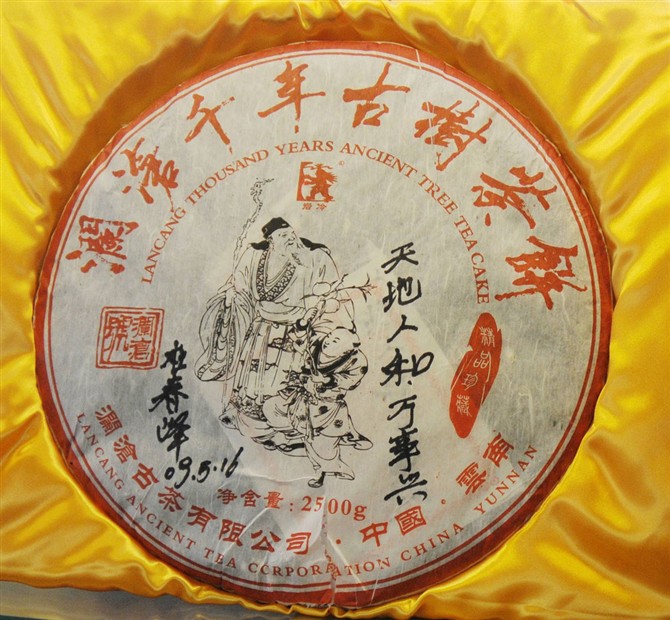 瀾滄千年古樹茶餅
LANCANG THOUSAND YEARS ANCIENT TREE TEA CAKE
天地人和.万事兴
精品珍藏
瀾滄號
杜春峄
09.5.16
净含量:2500g
瀾滄古茶有限公司·中國·雲南
LANCANG ANCIENT TEA CORPORATION CHINA YUNNAN